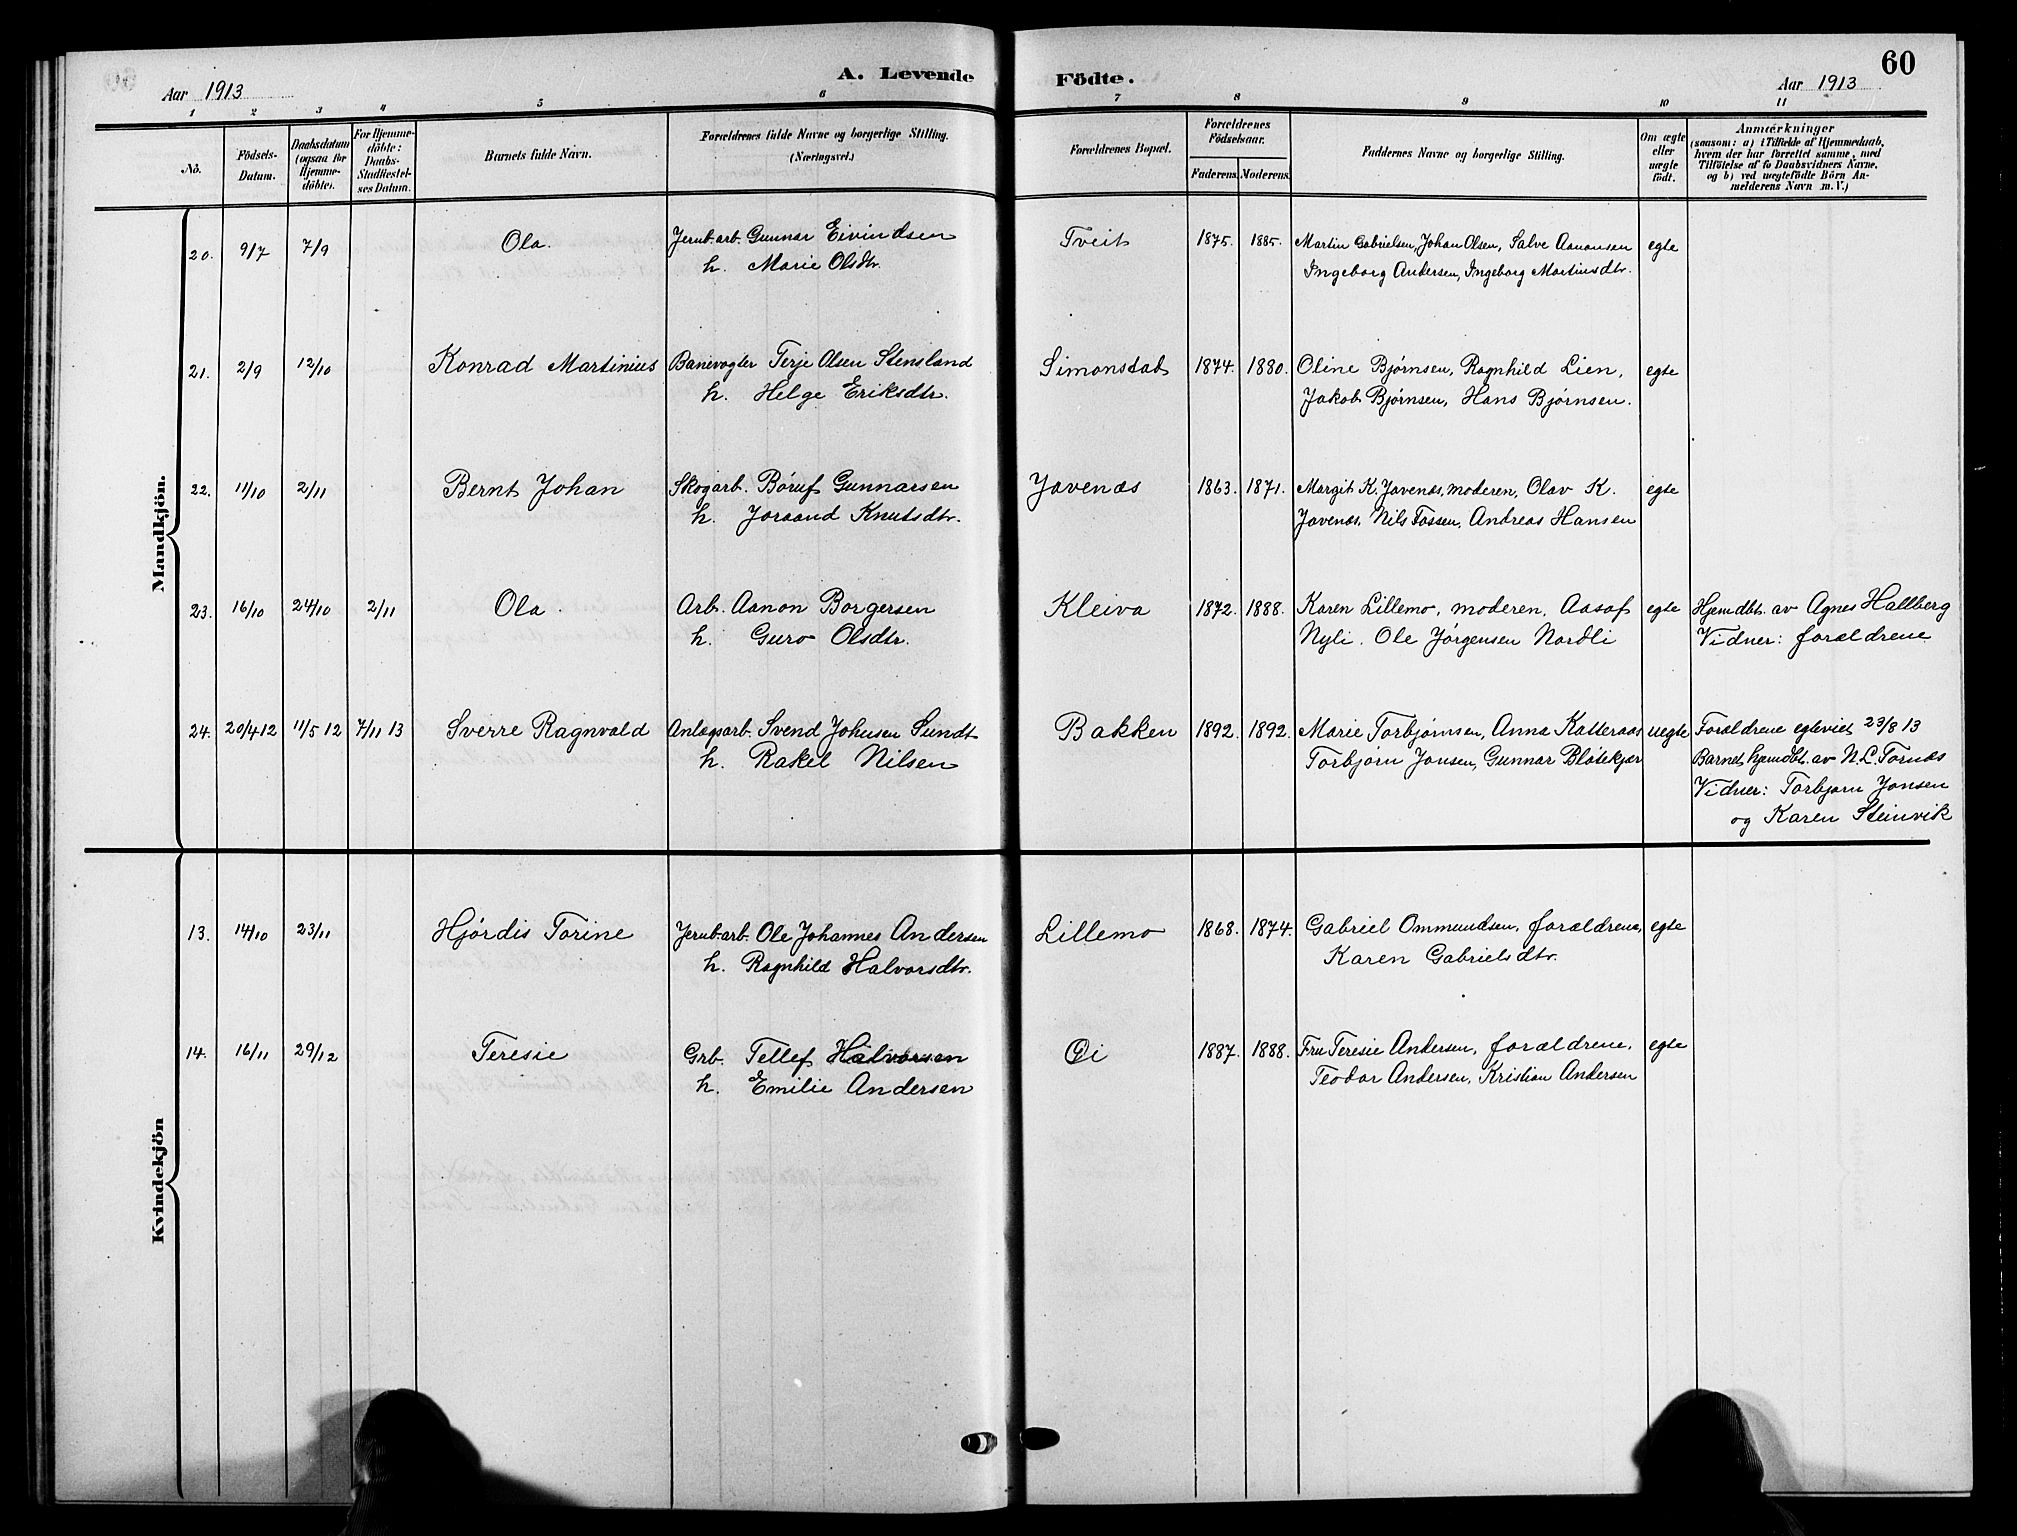 60
A. Levende Födte.
Aar 1913
Aar 1913
1 2 3 4 5 6 7 8 9 10 11
No.
Födsels-Datum.
Daabsdatum (ogsaa for Hjemme-döbte).
For Hjemme-döbte: Daabs-Stadfæstel-ses Datum.
Barnets fulde Navn.
Forældrenes fulde Navne og borgerlige Stilling. (Næringsvei.)
Forældrenes Bopæl.
Forældrenes Födselsaar.
Faderens. Moderens.
Faddernes Navne og borgerlige Stilling.
Om ægte eller uægte födt.
Anmærkninger
(saasom: a) i Tilfælde af Hjemmedaab,
hvem der har forrettet samme, med
Tilföielse af to Daabsvidners Navne,
og b) ved uægtefödte Börn An-
melderens Navn m. V.)
Mandkjön.
20. 9/7 7/9 Ola. Jernb.arb. Gunnar Eivindsen Tveit 1875. 1885. Martin Gabrielsen, Johan Olsen, Salve Aanonsen egte
h. Marie Olsdtr. Ingeborg Andersen, Ingeborg Martinsdtr.
21. 2/9 12/10 Konrad Martinius Banevogter Terje Olsen Stensland Simonstad 1874. 1880. Oline Bjørnsen, Ragnhild Lien, egte
h. Helge Eriksdtr. Jakob Bjørnsen, Hans Bjørnsen.
22. 11/10 2/11 Bernt Johan Skogarb. Børuf Gunnarsen Jovenæs 1863. 1871. Margit K. Jovenæs, moderen, Olav K. egte
h. Joraand Knutsdtr. Jovenæs, Nils Fossen, Andreas Hansen
23. 16/10 24/10 2/11 Ola. Arb. Aanon Borgersen Kleiva 1872. 1888. Karen Lillemo, moderen, Aasof egte Hjemdbt. av Agnes Hallberg
h. Guro Olsdtr. Nyli. Ole Jørgensen Nordli Vidner: forældrene
24. 20/4 12 11/5 12 7/11 13 Sverre Ragnvald Anlægsarb. Svend Johnsen Sundt Bakken 1892. 1892. Marie Torbjørnsen, Anna Katteraas uegte Forældrene egteviet 23/8 13
h. Rakel Nilsen Torbjørn Jonsen, Gunnar Bløtekjær Barnet hjemdbt. av N. L. Tornæs
Vidner: Torbjørn Jonsen
og Karen Steinvik
Kvindekjön
13. 14/10 23/11 Hjørdis Torine Jernb.arb. Ole Johannes Andersen Lillemo 1868. 1874. Gabriel Ommundsen, forældrene, egte
h. Ragnhild Halvorsdtr. Karen Gabrielsdtr.
14. 16/11 29/12 Teresie Grb. Tellef Halvorsen Øi 1887. 1888. Fru Teresie Andersen, forældrene, egte
h. Emilie Andersen Teodor Andersen, Kristian Andersen